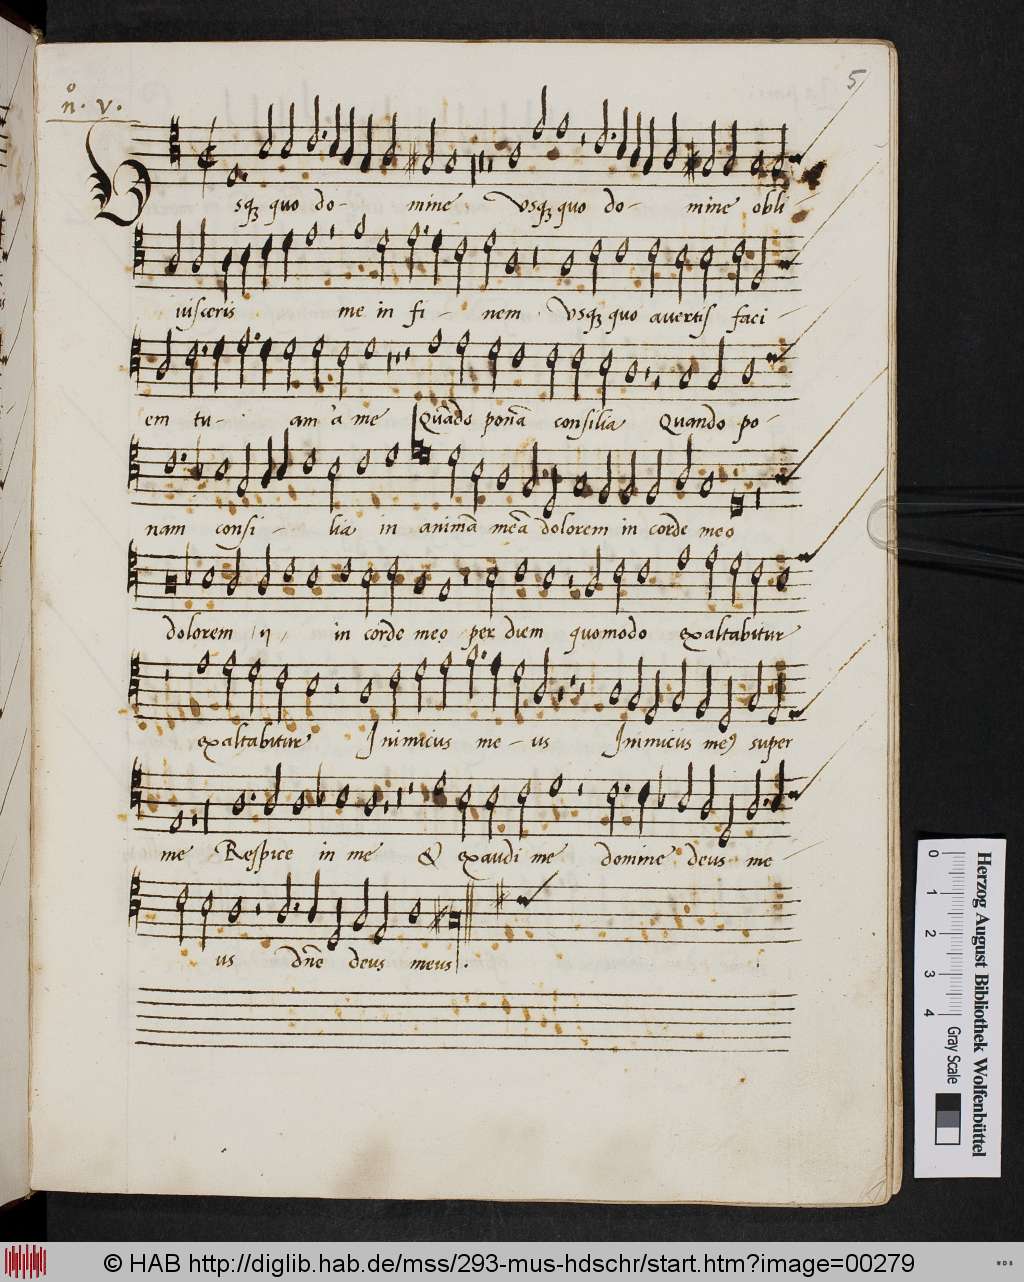 5
n.º v.
Vsqȝ quo do - mine Vsqȝ quo do - mine obli -
uisceris me in fi - nem Vsqȝ quo avertis faci -
em tu - am a me Quãdo ponã consilia Quando po -
nam consi - lia in animã meã dolorem in corde meo
dolorem ij in corde meo per diem quomodo exaltabitur
exaltabitur Inimicus me - us Inimicus me9 super
me Respice in me & exaudi me domine deus me -
us dñe deus meus.
0 1 2 3 4
Gray Scale
Herzog August Bibliothek Wolfenbüttel
© HAB http://diglib.hab.de/mss/293-mus-hdschr/start.htm?image=00279